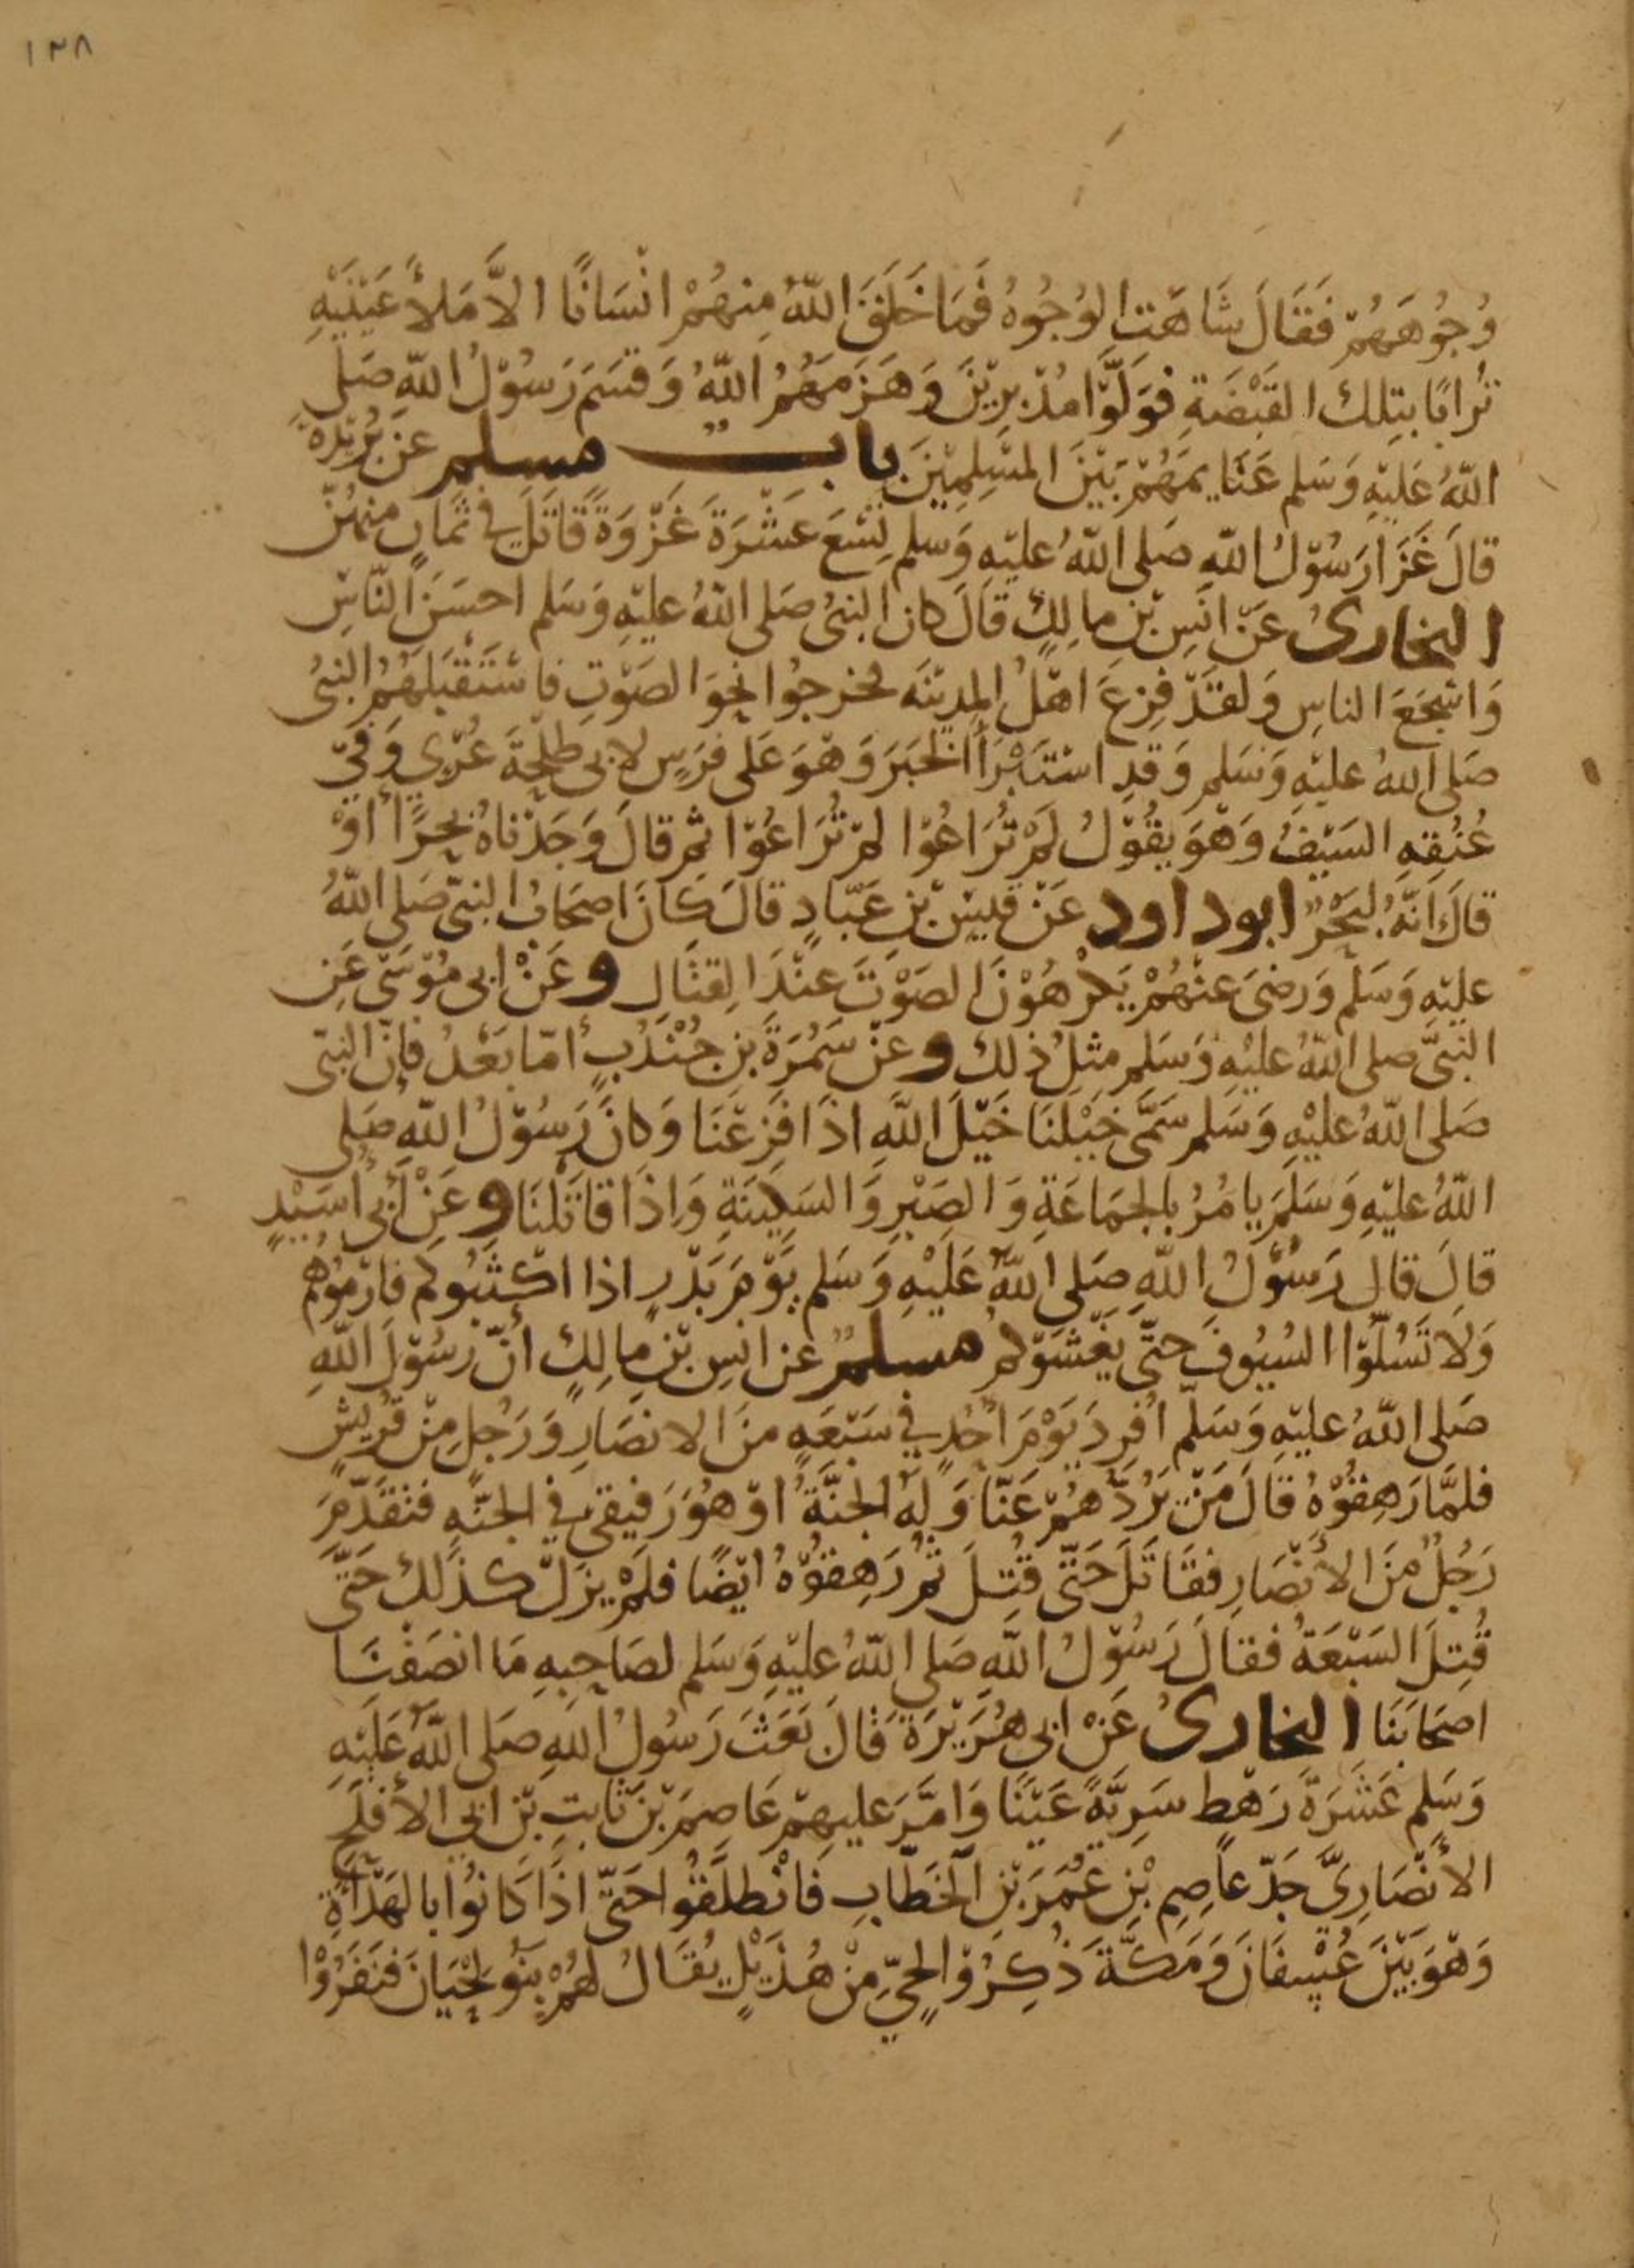 ١٣٨
وُجُوهَهُمْ فَقَالَ شَاهَتِ الوُجُوهُ فَمَا خَلَقَ اللّهُ مِنهُمْ انْسَانًا الاَّ مَلأَ عَيْنَيْهِ
تُرابًا بتِلك القَبْضَةِ فوَلَّوْا مُدْبِرِيْنَ وَهَزَمَهُمُ اللّهُ وَقسَمَ رَسُوْلُ اللّهِ صَلى
اللّهُ عَليْهِ وَسَلم غَنَايمَهُمْ بَيْنَ المسْلِمِيْنَ باب مسلم عَنْ بُرَيْدَةَ
قالَ غَزَا رَسُوْلُ اللّهِ صَلى اللّهُ عليْهِ وَسلم تِسْعَ عَشْرَةَ غَزْوَةً قَاتَلَ في ثَمَانٍ مِنهُنّ
البخارىُ عَنْ انَسِ بْنِ مالِكٍ قَالَ كان النبىُ صَلى اللّهُ عليْهِ وَسَلم احسَنَ النّاسِ
وَاشْجَعَ الناسِ وَلقدْ فزِعَ اهْلُ المدِيْنَه فخرجُوا نحوَ الصَوْتِ فاسْتَقْبَلهُمُ النبىُ
صَلى اللهُ عليْهِ وَسَلم وَقدِ اسْتَبْرَأَ الخبَرَ وَهْوَ عَلى فرَسٍ لابى طلْحَةَ عُرْيٍ وَفِيْ
عُنُقِهِ السَيْفُ وَهْوَ يقُوْلُ لَمْ تُرَاعُوْا لمْ تُرَاعُوْا ثم قالَ وَجَدْناهُ بحرًا أَوْ
قالَ انَّهُ لبَحْرٌ ابو داود عَنْ قيْسِ بْنِ عَبّادٍ قالَ كَانَ اصحَابُ النبىّ صَلى اللّهُ
عليْهِ وَسَلَم وَرضىَ عنْهُمْ يَكرْهُوْنَ الصَوْتَ عنْدَ القتَالِ وعَنْ ابى مُوْسَى عَنِ
النَبىَّ صلى اللّهُ عليْهِ وَسَلم مثلُ ذلك وعنْ سَمُرَةَ بْنِ جُنْدُبٍ أمّا بَعْدُ فإِنّ النبّى
صَلى اللّهُ عليْهِ وَسَلم سَمَّى خيْلنَا خَيْلَ اللّهِ اذَا فَزِعْنَا وَكانَ رَسُوْلُ اللّهِ صَلى
اللّهُ عليْهِ وَسَلَمَ يامُرُ بالجمَاعَةِ وَالصَبْرِ وَالسَكِينَةِ وَاِذَا قاتَلْنَا وعَنْ أَبى أُسَيْدٍ
قالَ قال رَسُوْلُ اللّهِ صَلى اللّهُ عَلَيْهِ وَسَلم يَوْمَ بَدْرٍ اذا اكْثبُوكم فارْمُوْهُم
وَلاَ تَسُلّوْا السُيُوفَ حتَّى يَغْشَوْكم مسلمٌ عن انسِ بْنِ مالِكٍ أنّ رسُوْلَ اللّهِ
صَلى اللّهُ عليْهِ وَسَلّم افُرِدَ يَوْمَ اُحُدٍ في سَبْعَهٍ منَ الانصَارِ وَرَجُلٍ مِنْ قُرَيشٍ
فلمَّا رَهِقُوْهُ قَالَ مَنْ يَرُدّهُمْ عَنّا وَلهُ الجنَّةُ اوْ هُوَ رَفيقى في الجنّهِ فتقَدّمَ
رَجُلٌ مِنَ الأنْصَارِ فقَاتَلَ حَتّى قُتِلَ ثُمّ رَهِقوْهُ ايْضًا فلَمْ يزَلْ كذَلكَ حَتَّى
قُتِلَ السَبْعَةُ فقالَ رَسُوْلُ اللّهِ صَلى اللّهُ عليْهِ وَسَلم لصَاحِبِهِ مَا انصَفْنَا
اصحَابَنَا البخارىُ عَنْ ابى هُرَيْرَةَ قالَ بَعَثَ رَسُولُ اللّهِ صَلى اللّهُ عَلَيْهِ
وَسَلم عَشَرَةَ رَهْطٍ سَرِيَّةً عَيْنًا وَامَّرَ عليهِمْ عَاصِمَ بْنَ ثَابِتِ بْنِ ابي الأَقلَحِ
الأَنْصَارِىَّ جَدّ عاَصِمِ بْنِ عُمَرَ بْنِ الخَطّابِ فَانْطلَقُوا حَتّى اذَا كَانُوْا بالهَدْأَةِ
وَهْوَ بَيْنَ عُسْفَانَ وَمَكَّةَ ذُكِرُوْا لحَيٍّ مِنْ هُذَيْلٍ يُقَالُ لهُمْ بَنُو لحْيَانَ فنَفَرُوْا